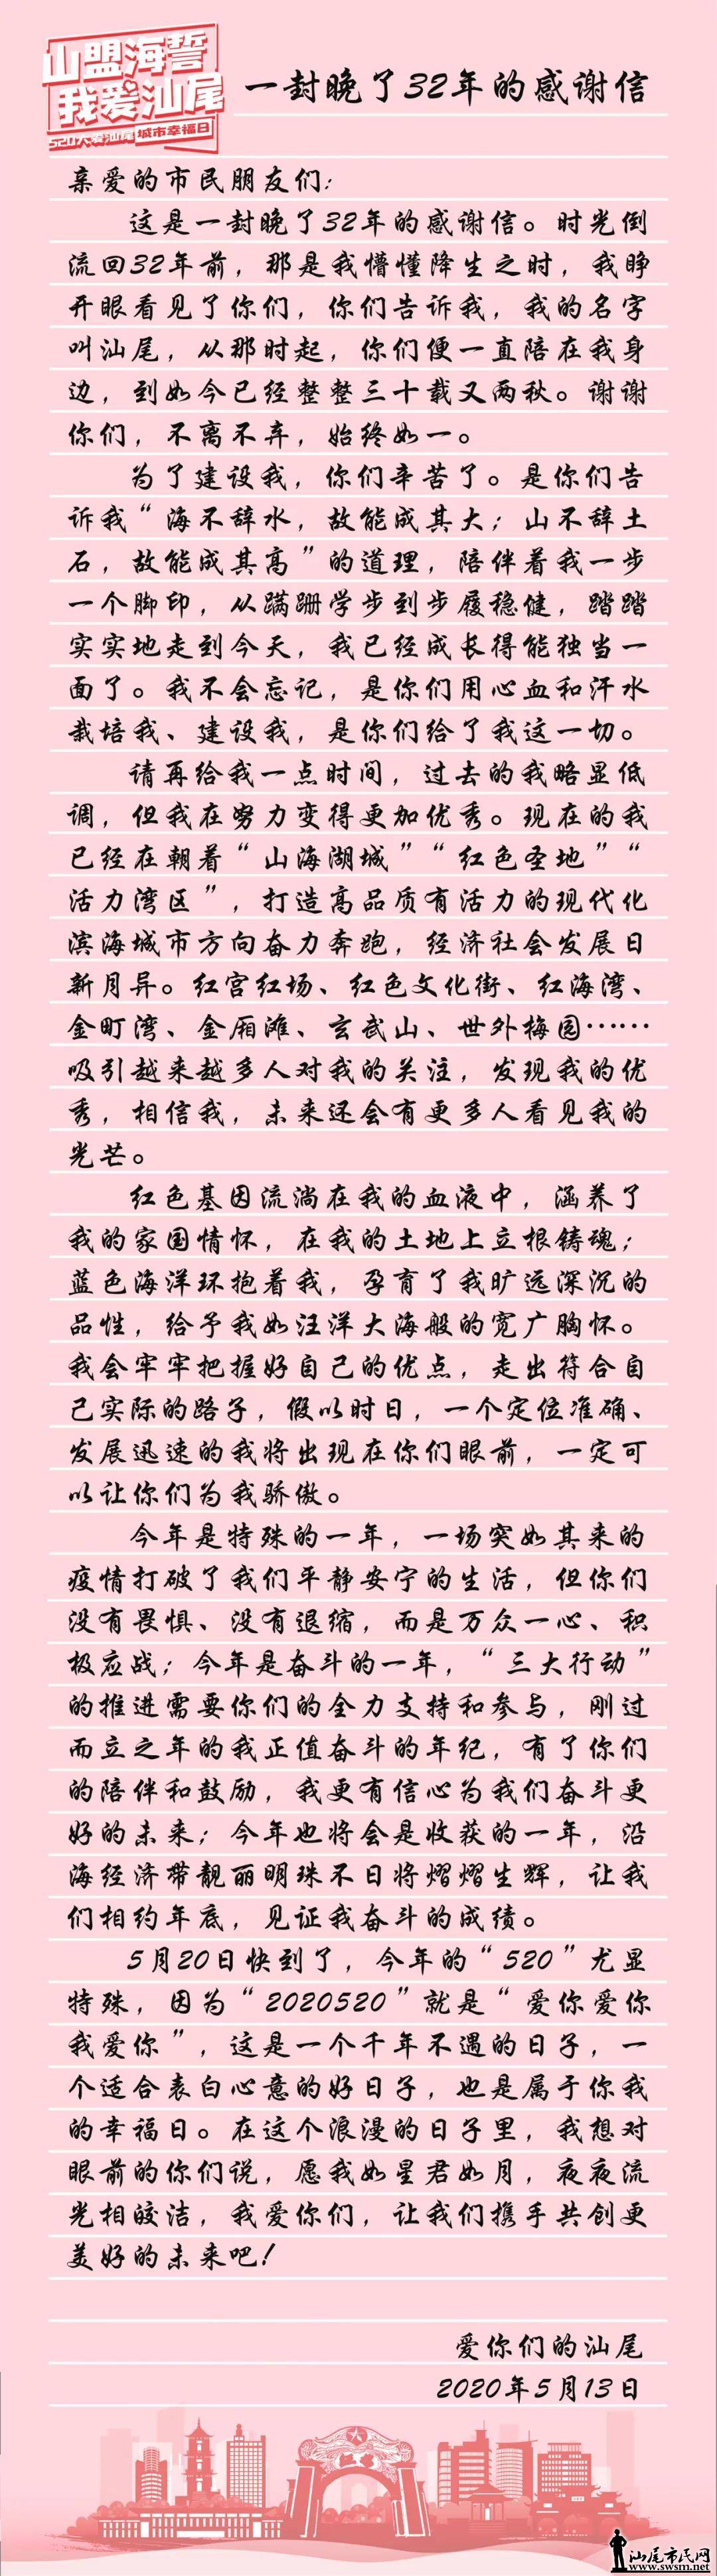 山盟海誓
我爱汕尾
520大爱汕尾 城市幸福日
一封晚了32年的感谢信
亲爱的市民朋友们:
这是一封晚了32年的感谢信。时光倒
流回32年前，那是我懵懂降生之时，我睁
开眼看见了你们，你们告诉我，我的名字
叫汕尾，从那时起，你们便一直陪在我身
边，到如今已经整整三十载又两秋。谢谢
你们，不离不弃，始终如一。
为了建设我，你们辛苦了。是你们告
诉我“海不辞水，故能成其大；山不辞土
石，故能成其高”的道理，陪伴着我一步
一个脚印，从蹒跚学步到步履稳健，踏踏
实实地走到今天，我已经成长得能独当一
面了。我不会忘记，是你们用心血和汗水
栽培我、建设我，是你们给了我这一切。
请再给我一点时间，过去的我略显低
调，但我在努力变得更加优秀。现在的我
已经在朝着“山海湖城”“红色圣地”“
活力湾区”，打造高品质有活力的现代化
滨海城市方向奋力奔跑，经济社会发展日
新月异。红宫红场、红色文化街、红海湾、
金町湾、金厢滩、玄武山、世外梅园……
吸引越来越多人对我的关注，发现我的优
秀，相信我，未来还会有更多人看见我的
光芒。
红色基因流淌在我的血液中，涵养了
我的家国情怀，在我的土地上立根铸魂；
蓝色海洋环抱着我，孕育了我旷远深沉的
品性，给予我如汪洋大海般的宽广胸怀。
我会牢牢把握好自己的优点，走出符合自
己实际的路子，假以时日，一个定位准确、
发展迅速的我将出现在你们眼前，一定可
以让你们为我骄傲。
今年是特殊的一年，一场突如其来的
疫情打破了我们平静安宁的生活，但你们
没有畏惧、没有退缩，而是万众一心、积
极应战；今年是奋斗的一年，“三大行动”
的推进需要你们的全力支持和参与，刚过
而立之年的我正值奋斗的年纪，有了你们
的陪伴和鼓励，我更有信心为我们奋斗更
好的未来；今年也将会是收获的一年，沿
海经济带靓丽明珠不日将熠熠生辉，让我
们相约年底，见证我奋斗的成绩。
5月20日快到了，今年的“520”尤显
特殊，因为“2020520”就是“爱你爱你
我爱你”，这是一个千年不遇的日子，一
个适合表白心意的好日子，也是属于你我
的幸福日。在这个浪漫的日子里，我想对
眼前的你们说，愿我如星君如月，夜夜流
光相皎洁，我爱你们，让我们携手共创更
美好的未来吧！
爱你们的汕尾
2020年5月13日
汕尾市民网
www.swsm.net